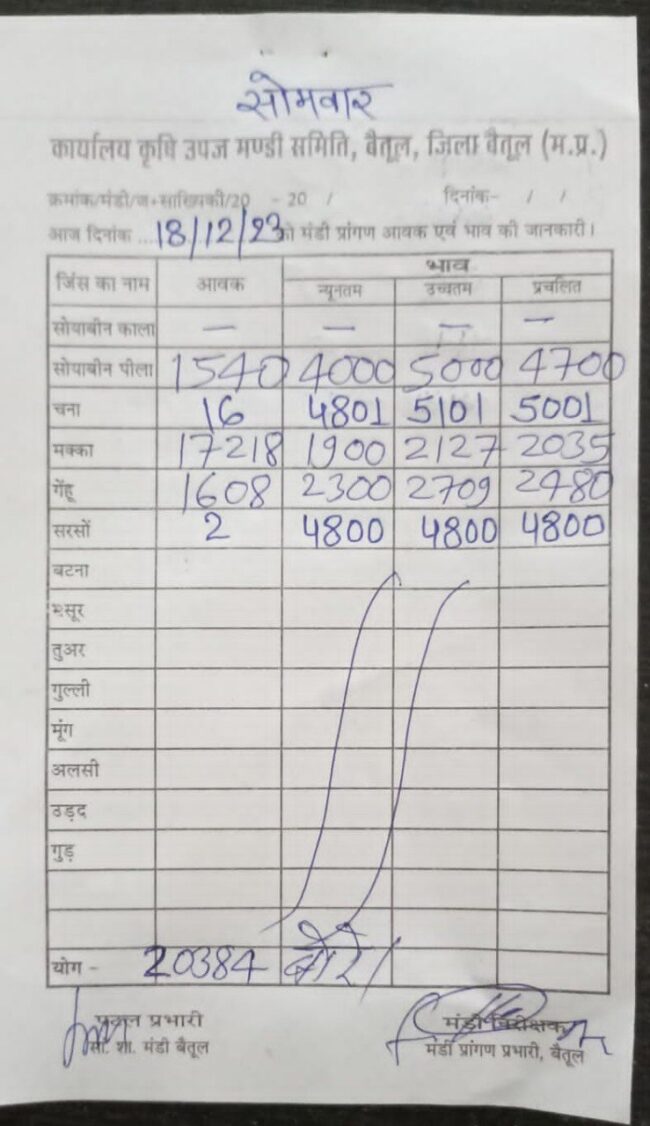 सोमवार
कार्यालय कृषि उपज मण्डी समिति, बैतूल, जिला बैतूल (म.प्र.)
क्रमांक/मंडी/ज-सांख्यिकी/20 - 20 / दिनांक- / /
आज दिनांक ...18/12/23 को मंडी प्रांगण आवक एवं भाव की जानकारी।
जिंस का नाम आवक भाव
न्यूनतम उच्चतम प्रचलित
सोयाबीन काला — — — —
सोयाबीन पीला 1540 4000 5000 4700
चना 16 4801 5101 5001
मक्का 17218 1900 2127 2035
गेंहू 1608 2300 2709 2480
सरसों 2 4800 4800 4800
बटना
मसूर
तुअर
गुल्ली
मूंग
अलसी
उड़द
गुड़
योग - 20384 बोरे/
प्रभारी मंडी निरीक्षक
सां. शा. मंडी बैतूल मंडी प्रांगण प्रभारी, बैतूल